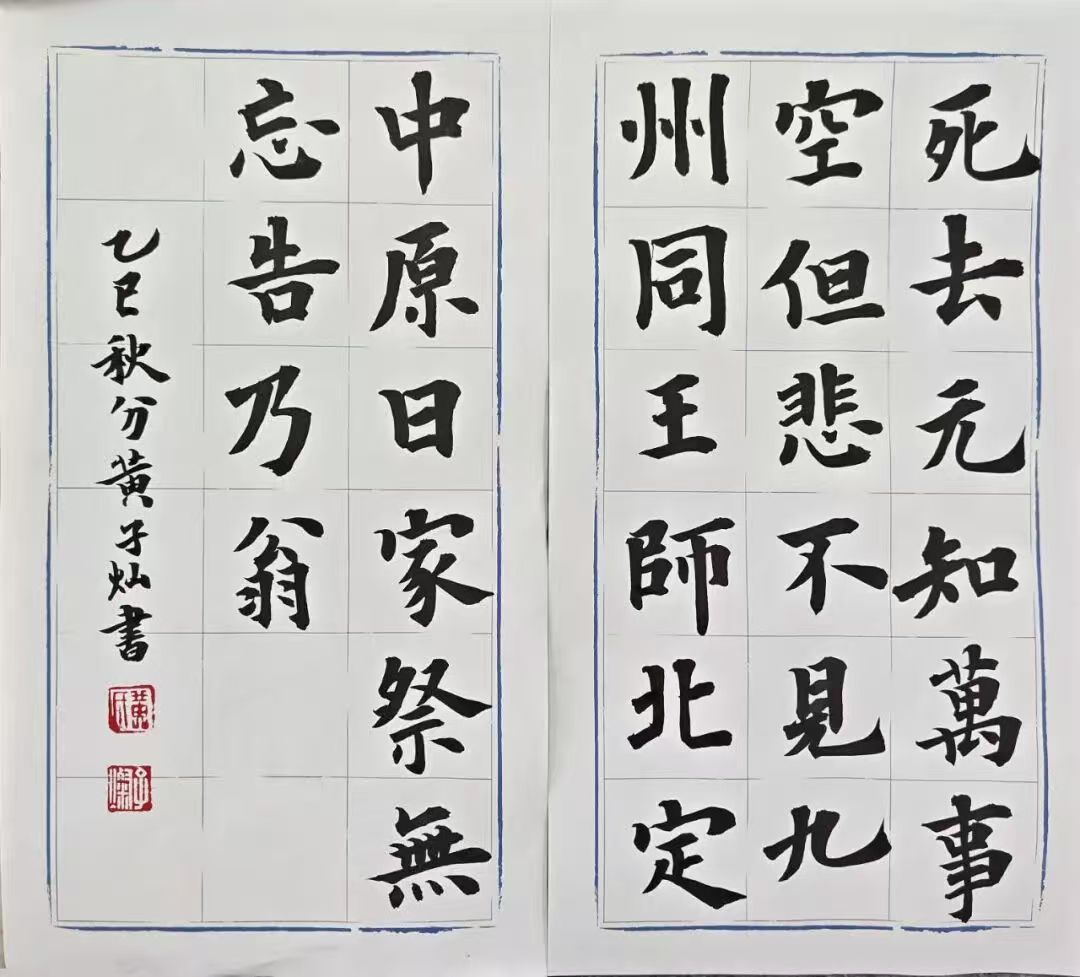 死去无知萬事
空但悲不見九
州同王師北定
中原日家祭無
忘告乃翁
乙巳秋分黄子灿書
黄氏
子燦